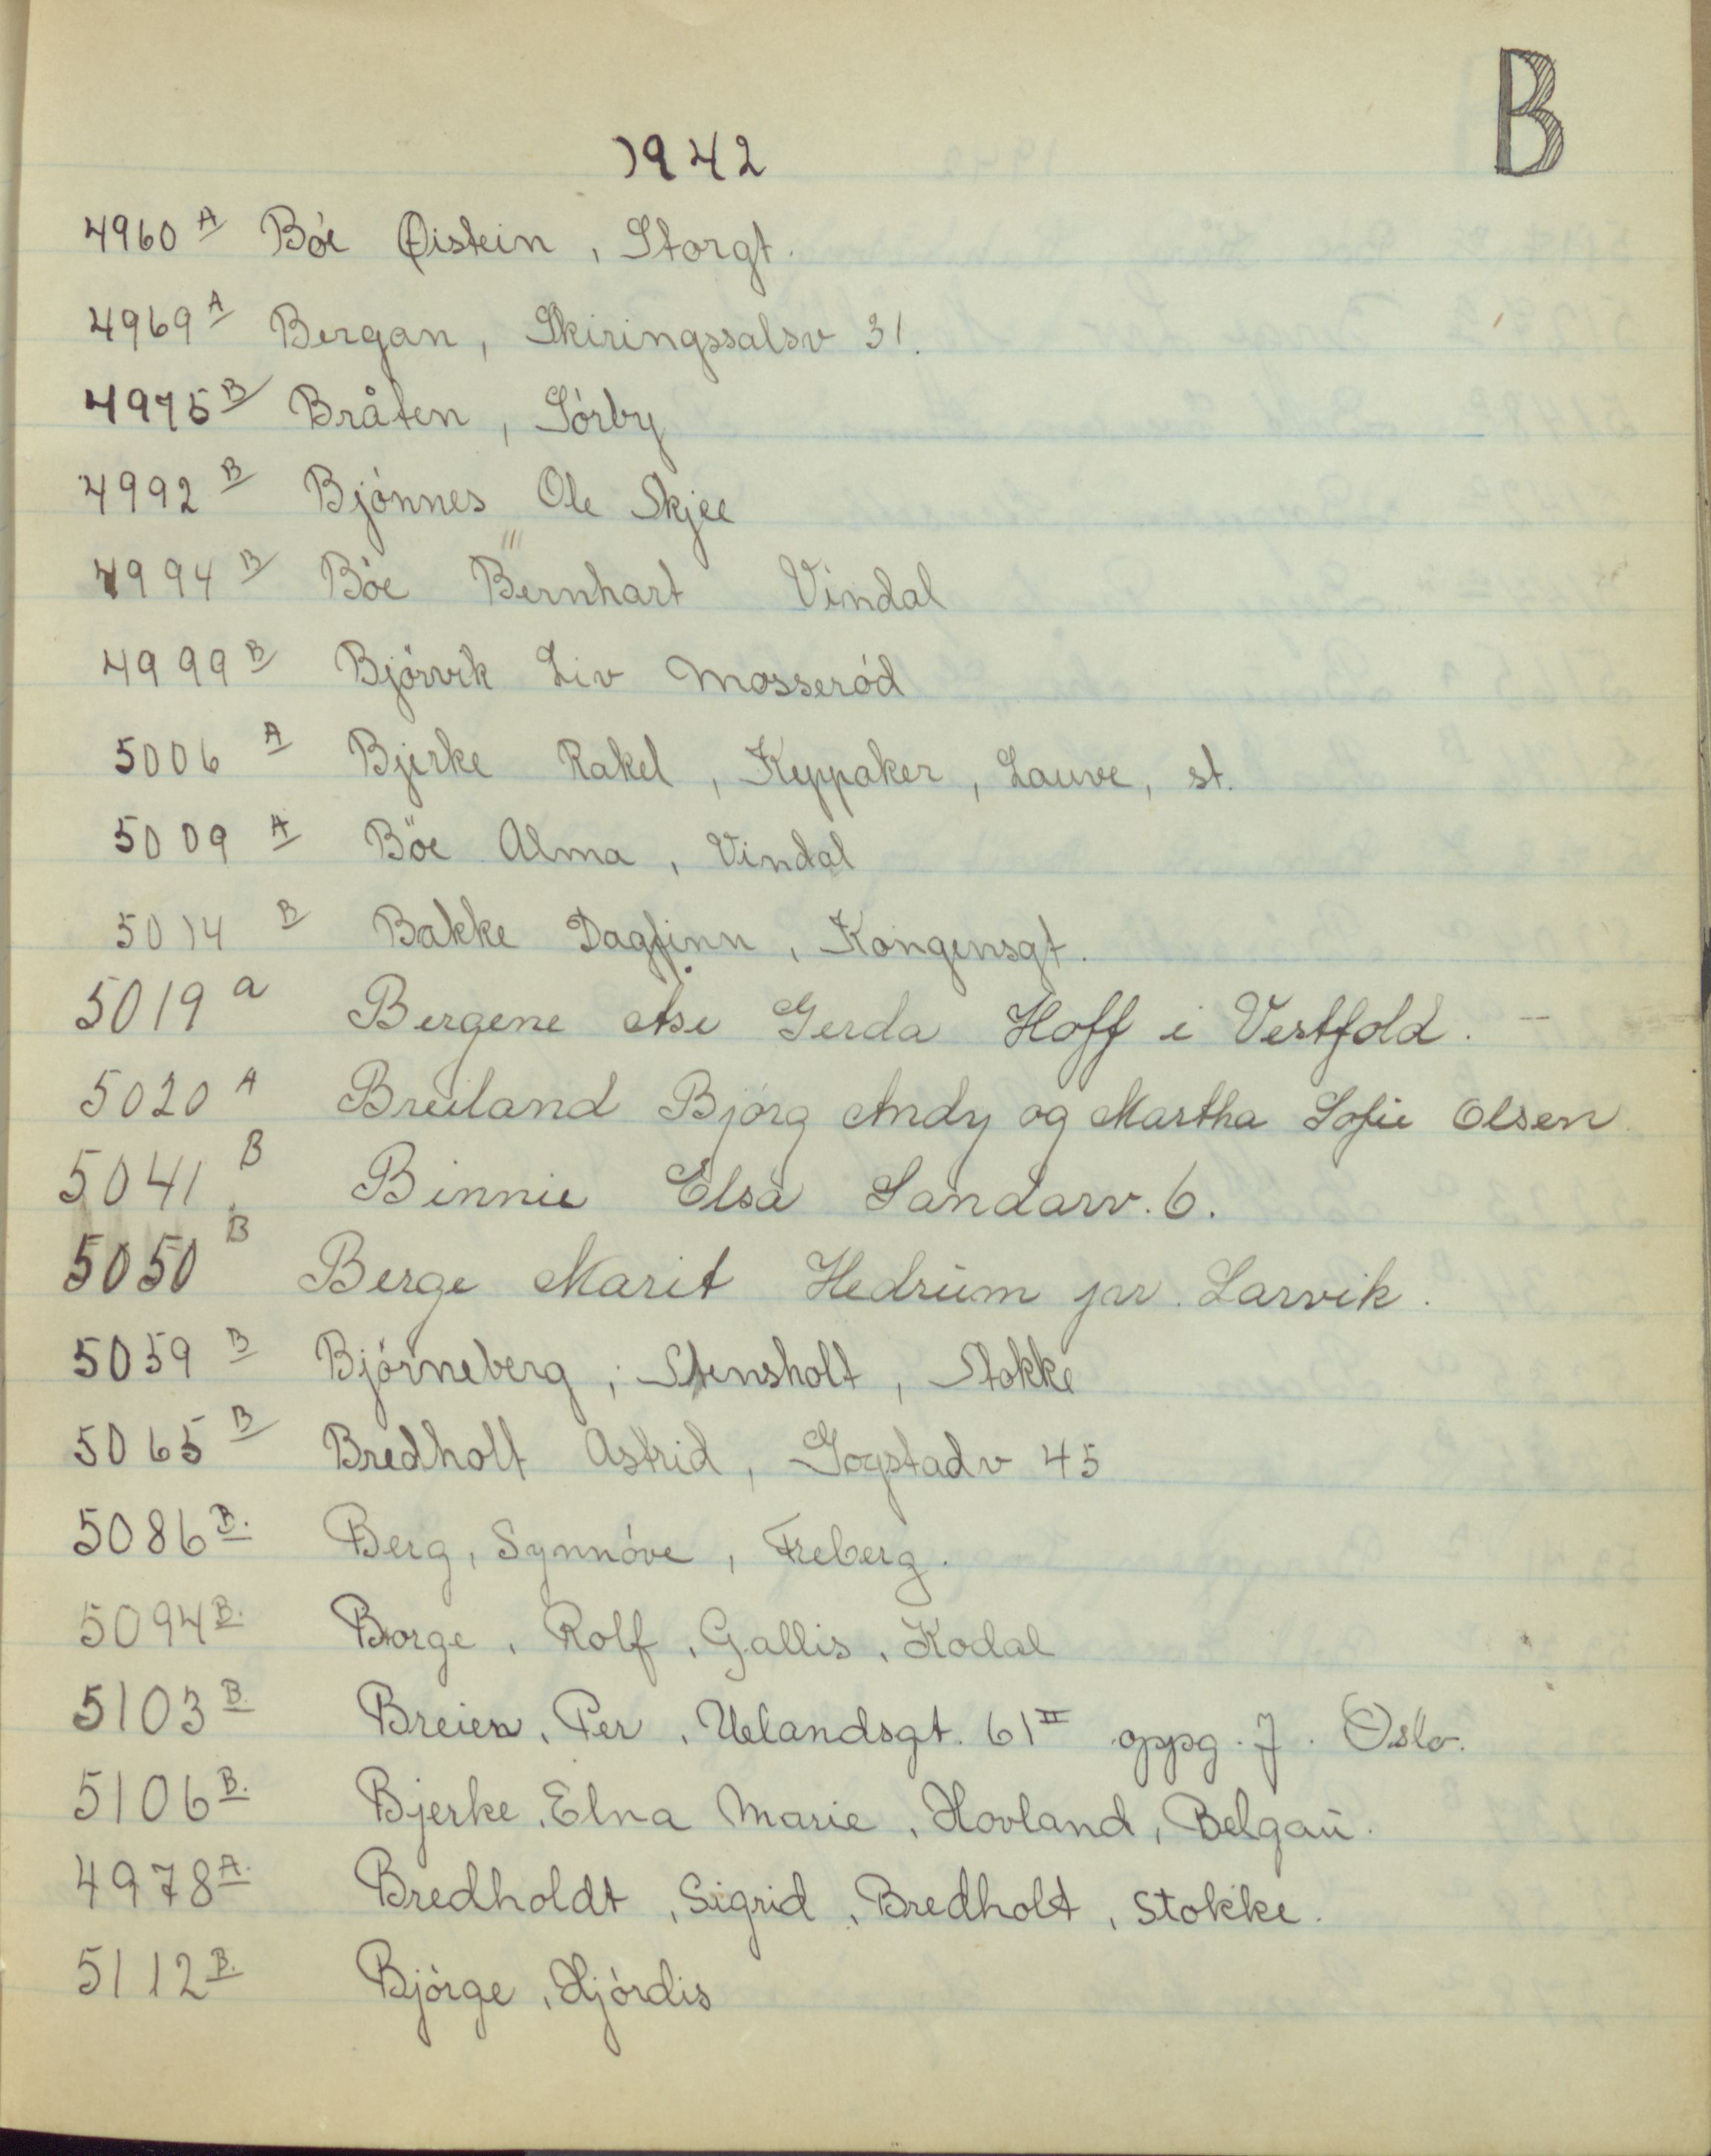 B
1942
4960 A Bóe Øistein, Storgt.
4969 A Bergan, Skiringssalsv 31.
4975 B Bråten, Sórby
4992 B Bjónnes Ole Skjee
4994 B Bóe Bernhart Vindal
4999 B Bjórvik Liv Mosseród
5006 A Bjerke Rakel, Keppaker, Lauve, st.
5009 A Böe Alma, Vindal
5014 B Bakke Dagfinn, Kongensgt.
5019 a Bergene Åse Gerda Hoff i Vestfold. –
5020 A Breiland Bjórg Andy og Martha Sofie Olsen
5041 B Binnie Elsa Sandarv. 6.
5050 B Berge Marit Hedrum pr. Larvik.
5059 B Bjórneberg, Stensholt, Stokke
5065 B Bredholt Astrid, Gogstadv 45
5086 B. Berg, Synnóve, Freberg.
5094 B. Borge, Rolf, Gallis, Kodal
5103 B. Breien, Per, Uelandsgt. 61 II oppg. J. Oslo.
5106 B. Bjerke, Elna Marie, Hovland, Belgau.
4978 A. Bredholdt, Sigrid, Bredholt, Stokke.
5112 B. Bjórge, Hjórdis